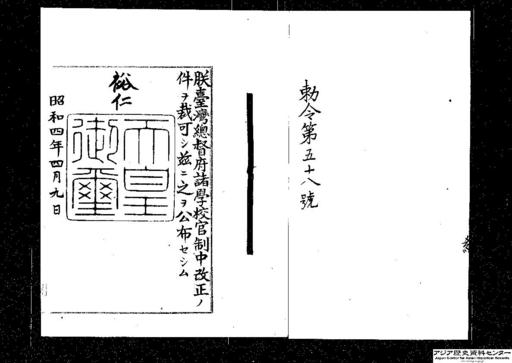 勅令第五十八號
朕臺灣總督府諸學校官制中改正ノ
件ヲ裁可シ茲ニ之ヲ公布セシム
裕仁
天皇
御璽
昭和四年四月九日
アジア歴史資料センター
Japan Center for Asian Historical Records